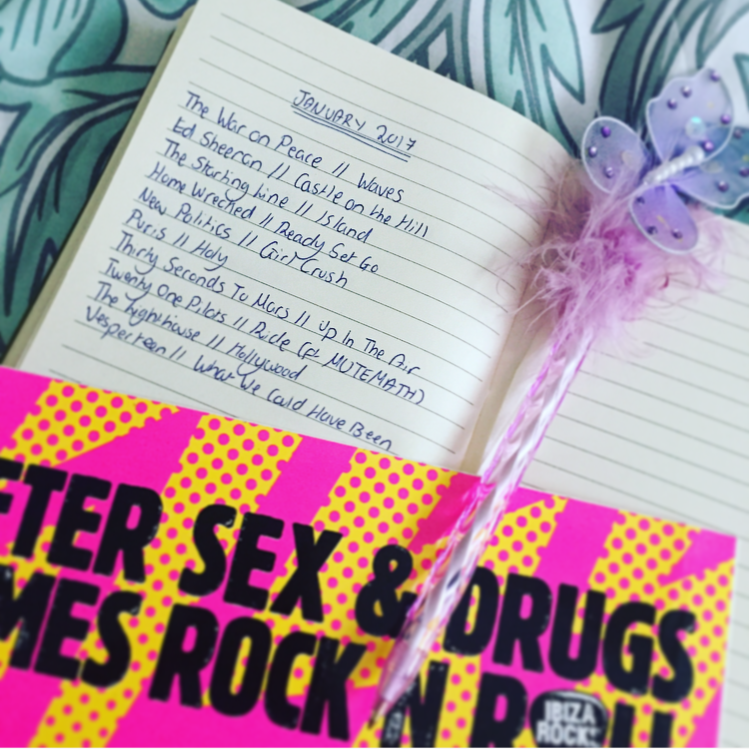 JANUARY 2017
The War on Peace // Waves
Ed Sheeran // Castle on the Hill
The Starting Line // Island
Home Wrecked // Ready Set Go
New Politics // Girl Crush
Puris // Holy
Thirty Seconds To Mars // Up In The Air
Twenty One Pilots // Ride (ft MUTEMATH)
The Lighthouse // Hollywood
Vesperteen // What We Could Have Been
FTER SEX & DRUGS
MES ROCK N ROLL
IBIZA
ROCKS